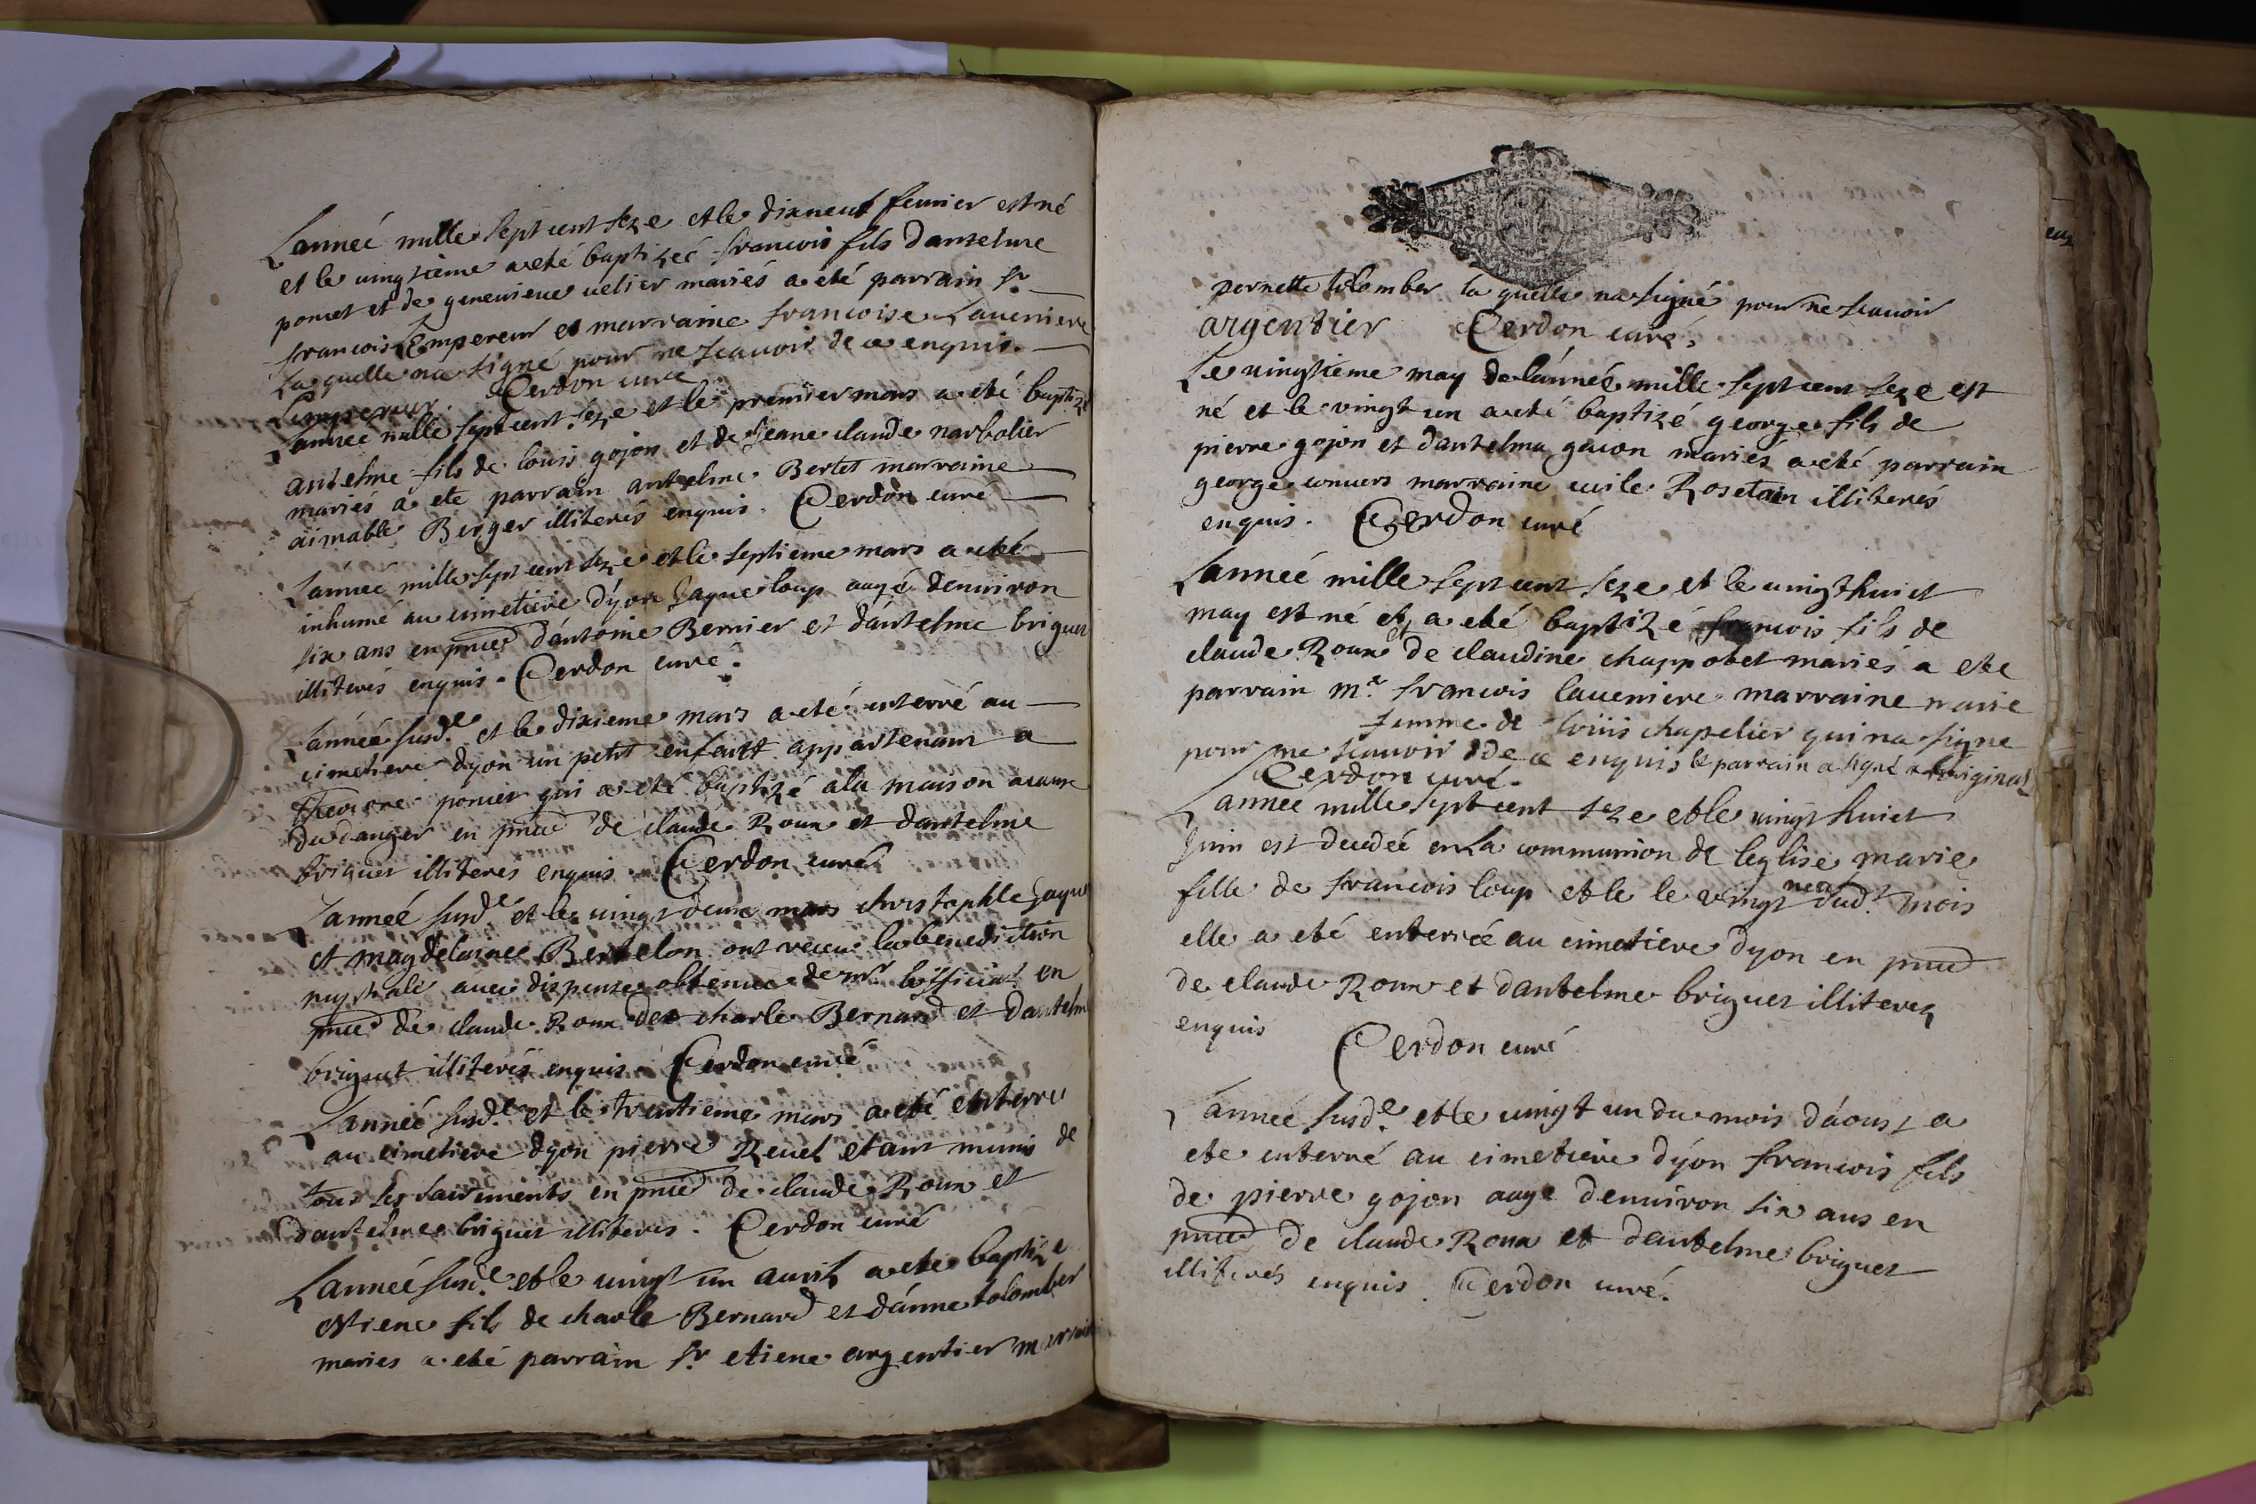 Lanneé mille sept cent seze et le dixneuf feurier est né
et le uingtieme a eté baptizeé francois fils dantelme
poncet et de geneuieue uelier mariés a eté parrain Sr
francois Empereur et marraine francoise Laueniere
La quelle na signé pour ne scauoir de ce enquis.
Lempereur. Cerdon curé
Lanneé mille sept cent seze et le premier mars a eté baptizé
antelme fils de louis gojon et de Jeane claude narbolier
mariés a ete parrain antelme Bertet marraine
aimable Berger illiterés enquis. Cerdon curé
Lanneé mille sept cent seze et le septieme mars a eté
inhumé au cimetiere dyon Jaque loup aagé denuiron
six ans en pnce dántoine Bernier et dántelme briguet
illiterés enquis. Cerdon curé.
Lánneé susde. et le dixieme mars a eté enterré au
cimetiere dyon un petit enfant appartenant a
poncet qui a eté baptizé a la maison a cause
du danger en pnce de claude Roux et dantelme
briguet illiteres enquis. Cerdon curé
Lanneé susde. et le uingt deux mars christophle Jaque
et magdelaine Bertelon ont receu la benediction
nuptiale auec dispense obtenue de mr lofficial en
pnce de claude Roux de charle Bernard et dantelme
briguet illiterés enquis. Cerdon curé
Lanneé susde. et le trentieme mars a eté enterré
au cimetiere dyon pierre Reuel etant munis de
tous les sacrements en pnce de claude Roux et
dantelme briguet illiteres. Cerdon curé
Lanneé susde. et le uingt un auril a ete baptizé
etiene fils de charle Bernard et dánne tolomber
maries a eté parrain Sr. etiene argentier marraine
pernette tolomber la quelle na signé pour ne scauoir
argentier Cerdon curé.
Le vingtieme may de lánneé mille sept cent seze est
né et le vingt un a eté baptizé george fils de
pierre gojon et dantelma gauon mariés a eté parrain
george conuers marraine Rosetain illiterés
enquis. Cerdon curé
Lanneé mille sept cent seze et le uingt huict
may est né et a eté baptizé francois fils de
claude Roux de claudine chappotet mariés a ete
parrain mr. francois laueniere marraine marie
femme de louis chapelier qui na signe
pour ne scauoir de ce enquis le parrain a signé a loriginal
Cerdon curé.
Lanneé mille sept cent seze et le uingt huict
Juin est decedeé en la communion de leglise marie
fille de francois loup et le le vingt neuf dudt. mois
elle a eté enterreé au cimetiere dyon en pnce
de claude Roux et dantelme briguet illiteres
enquis Cerdon curé
Lanneé susde. et le uingt un du mois dáoust a
ete enterré au cimetiere dyon francois fils
de pierre gojon aagé denuiron six ans en
pnce de claude Roux et dantelme briguet
illiterés enquis. Cerdon curé.